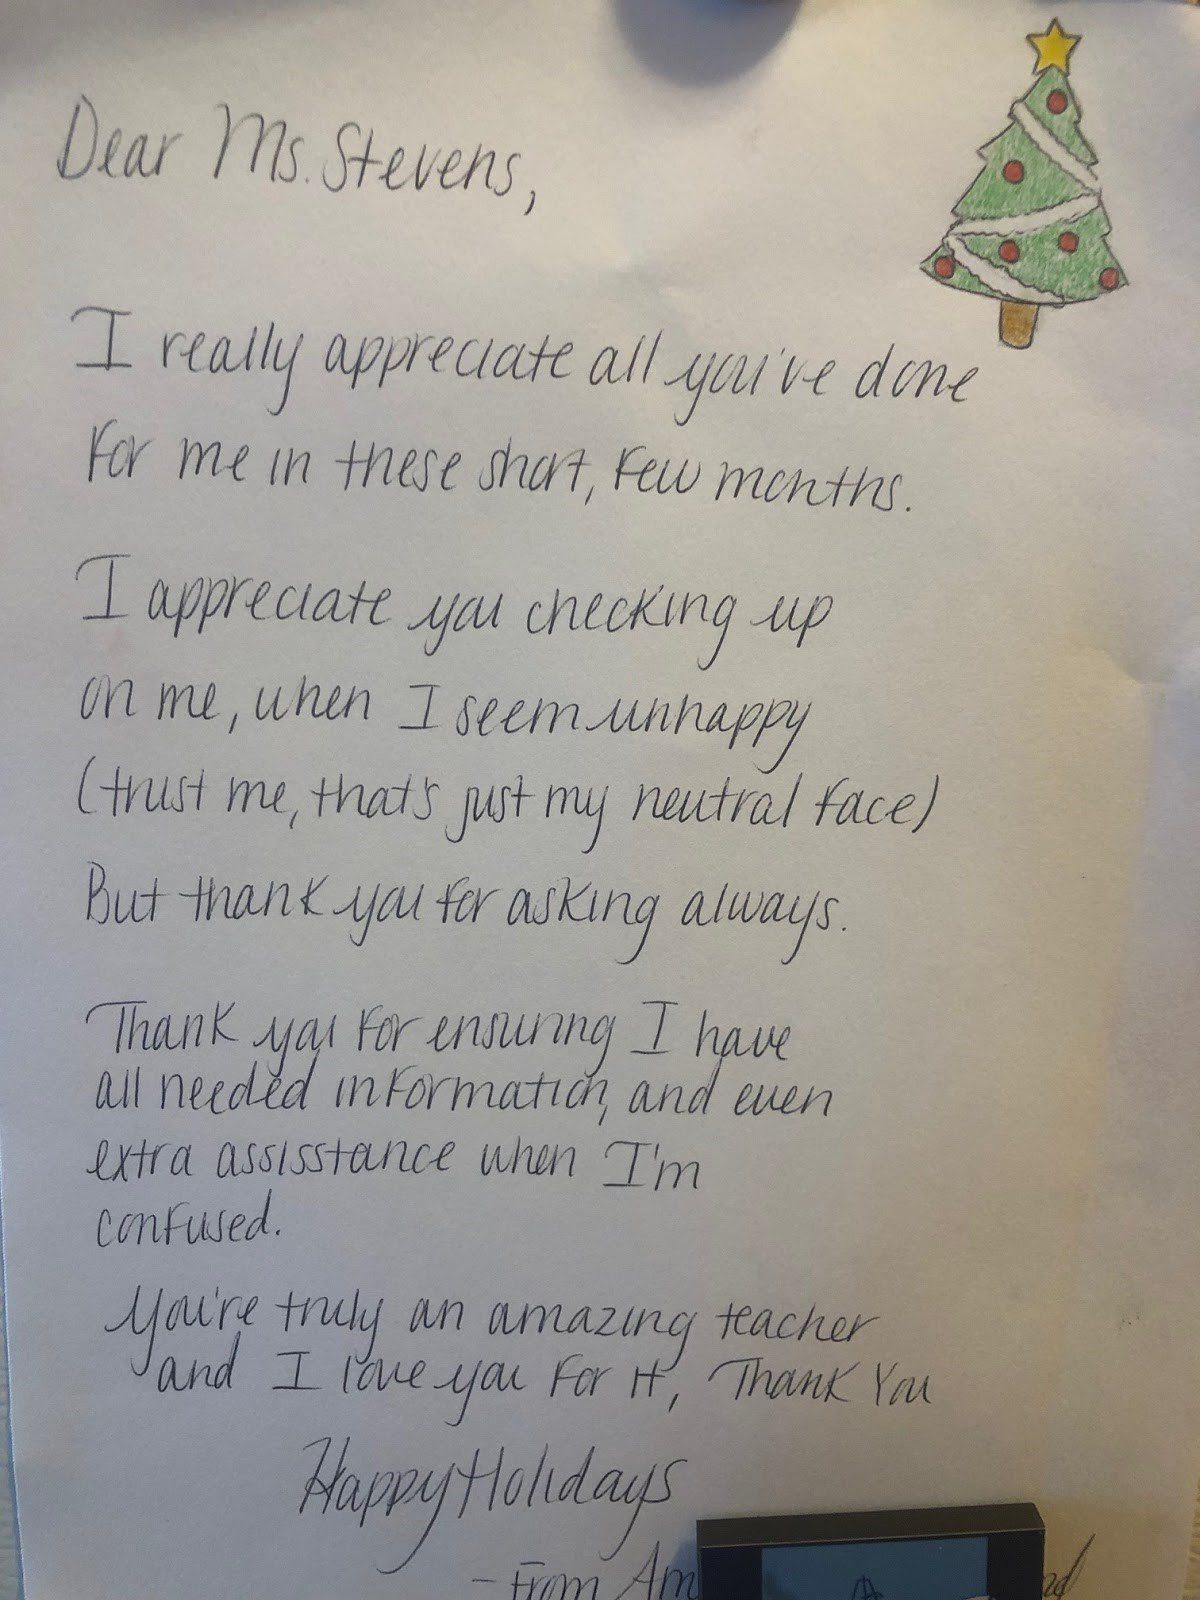 Dear Ms. Stevens,
I really appreciate all you've done
For me in these short, few months.
I appreciate you checking up
on me, when I seem unhappy
(trust me, that's just my neutral face)
But thank you for asking always.
Thank you for ensuring I have
all needed information, and even
extra assisstance when I'm
confused.
You're truly an amazing teacher
and I love you for it, Thank You
Happy Holidays
- From